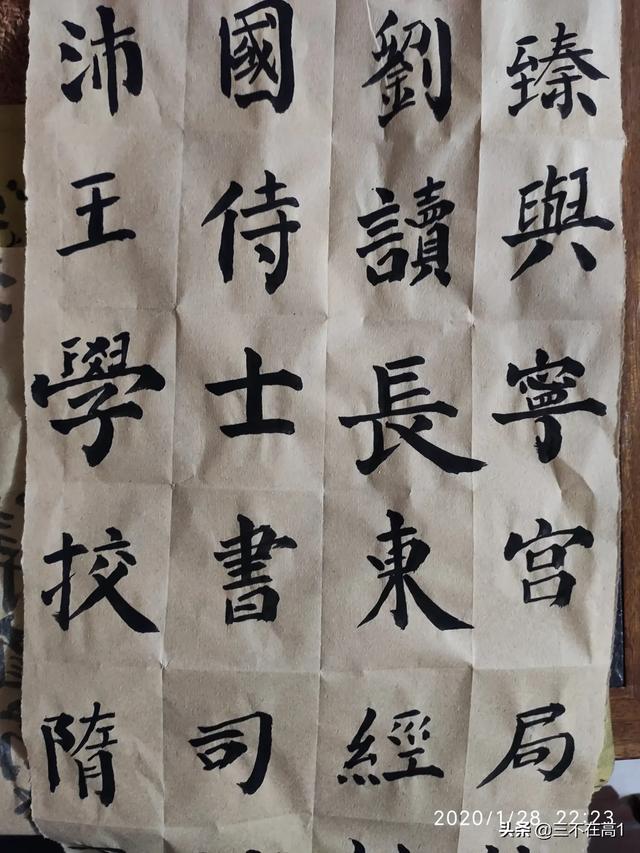 沛國劉臻
王侍讀與
學士長寧
挍書東宫
隋司經局
2020/1/28 22:23
头条 @三不在高1